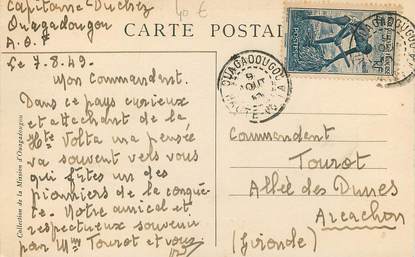 Capitaine Duchez
Ouagadougou
A.O.F
40 €
CARTE POSTALE
OUAGADOUGOU
HAUTE-VOLTA
Le 7.8.49.
Mon Commandant.
Dans ce pays curieux
et attachant de la
Hte Volta ma pensée
va souvent vers vous
qui fûtes un des
pionniers de la conquê-
te. Notre amical et
respectueux souvenir
par Mme Tourot et vous
Commandant
Tourot
Allée des Dunes
Arcachon
(Gironde)
Collection de la Mission d'Ouagadougou